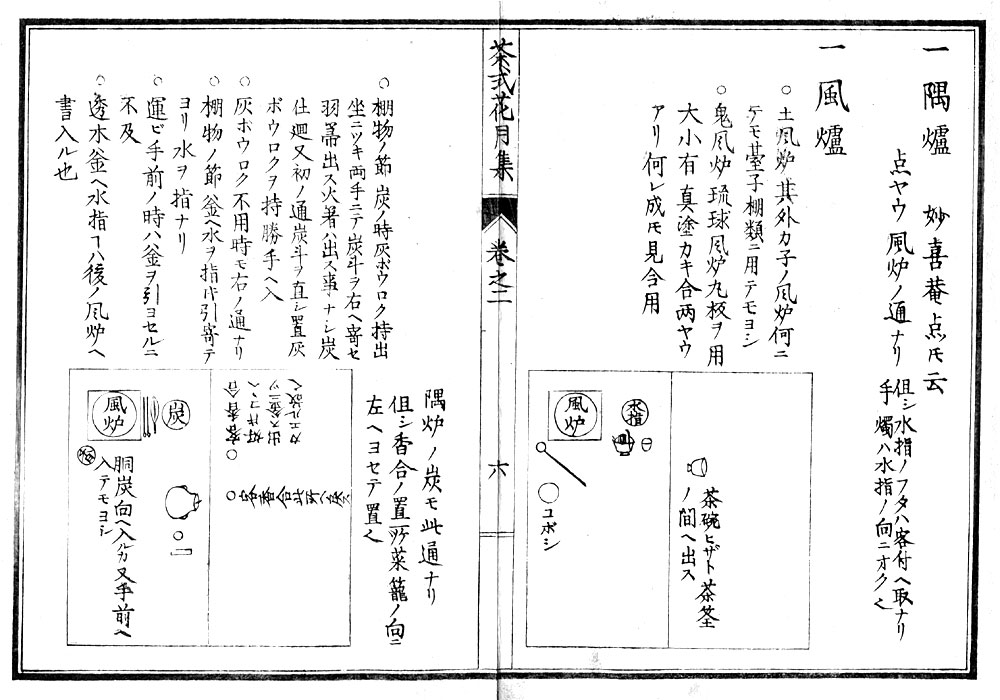 一 隅爐 妙喜菴点モ云
点ヤウ風炉ノ通ナリ
但シ水指ノフタハ客付ヘ取ナリ
手燭ハ水指ノ向ニオク
一 風爐
○土風炉其外カ子ノ風炉何ニ
テモ䑓子棚類ニ用テモヨシ
○鬼風炉琉球風炉丸板ヲ用
大小有真塗カキ合両ヤウ
アリ何レ成モ見合用
風炉
水指
ユボシ
茶碗ヒザト茶筌
ノ間ヘ出ス
茶式花月集
巻之二
六
○棚物ノ節炭ノ時灰ボウロク持出
坐ニツキ両手ニテ炭斗ヲ右ヘ寄セ
羽箒出ス火箸ハ出ス事ナシ炭
仕廻又初ノ通炭斗ヲ直シ置灰
ボウロクヲ持勝手ヘ入
○灰ボウロク不用時モ右ノ通ナリ
○棚物ノ節釜ヘ水ヲ指片引寄テ
ヨリ水ヲ指ナリ
○運ビ手前ノ時ハ釜ヲ引ヨセルニ
不及
○透木釜ヘ水指ヿハ後ノ風炉ヘ
書入ル也
隅炉ノ炭モ此通ナリ
但シ香合ノ置所菜籠ノ向ニ
左ヘヨセテ置
風炉
炭
香
胴炭向ヘ入ルカ又手前ヘ
入テモヨシ